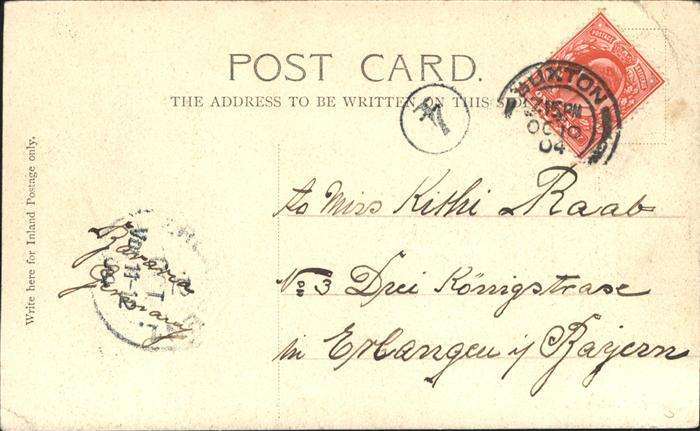 POST CARD.
THE ADDRESS TO BE WRITTEN ON THIS
BUXTON
7.15 PM
OC 10
04
Write here for Inland Postage only.
Bavaria
Germany
to Miss Kithi Raab
No 3 Drei Königstrase
in Erlangen i/ Bayern